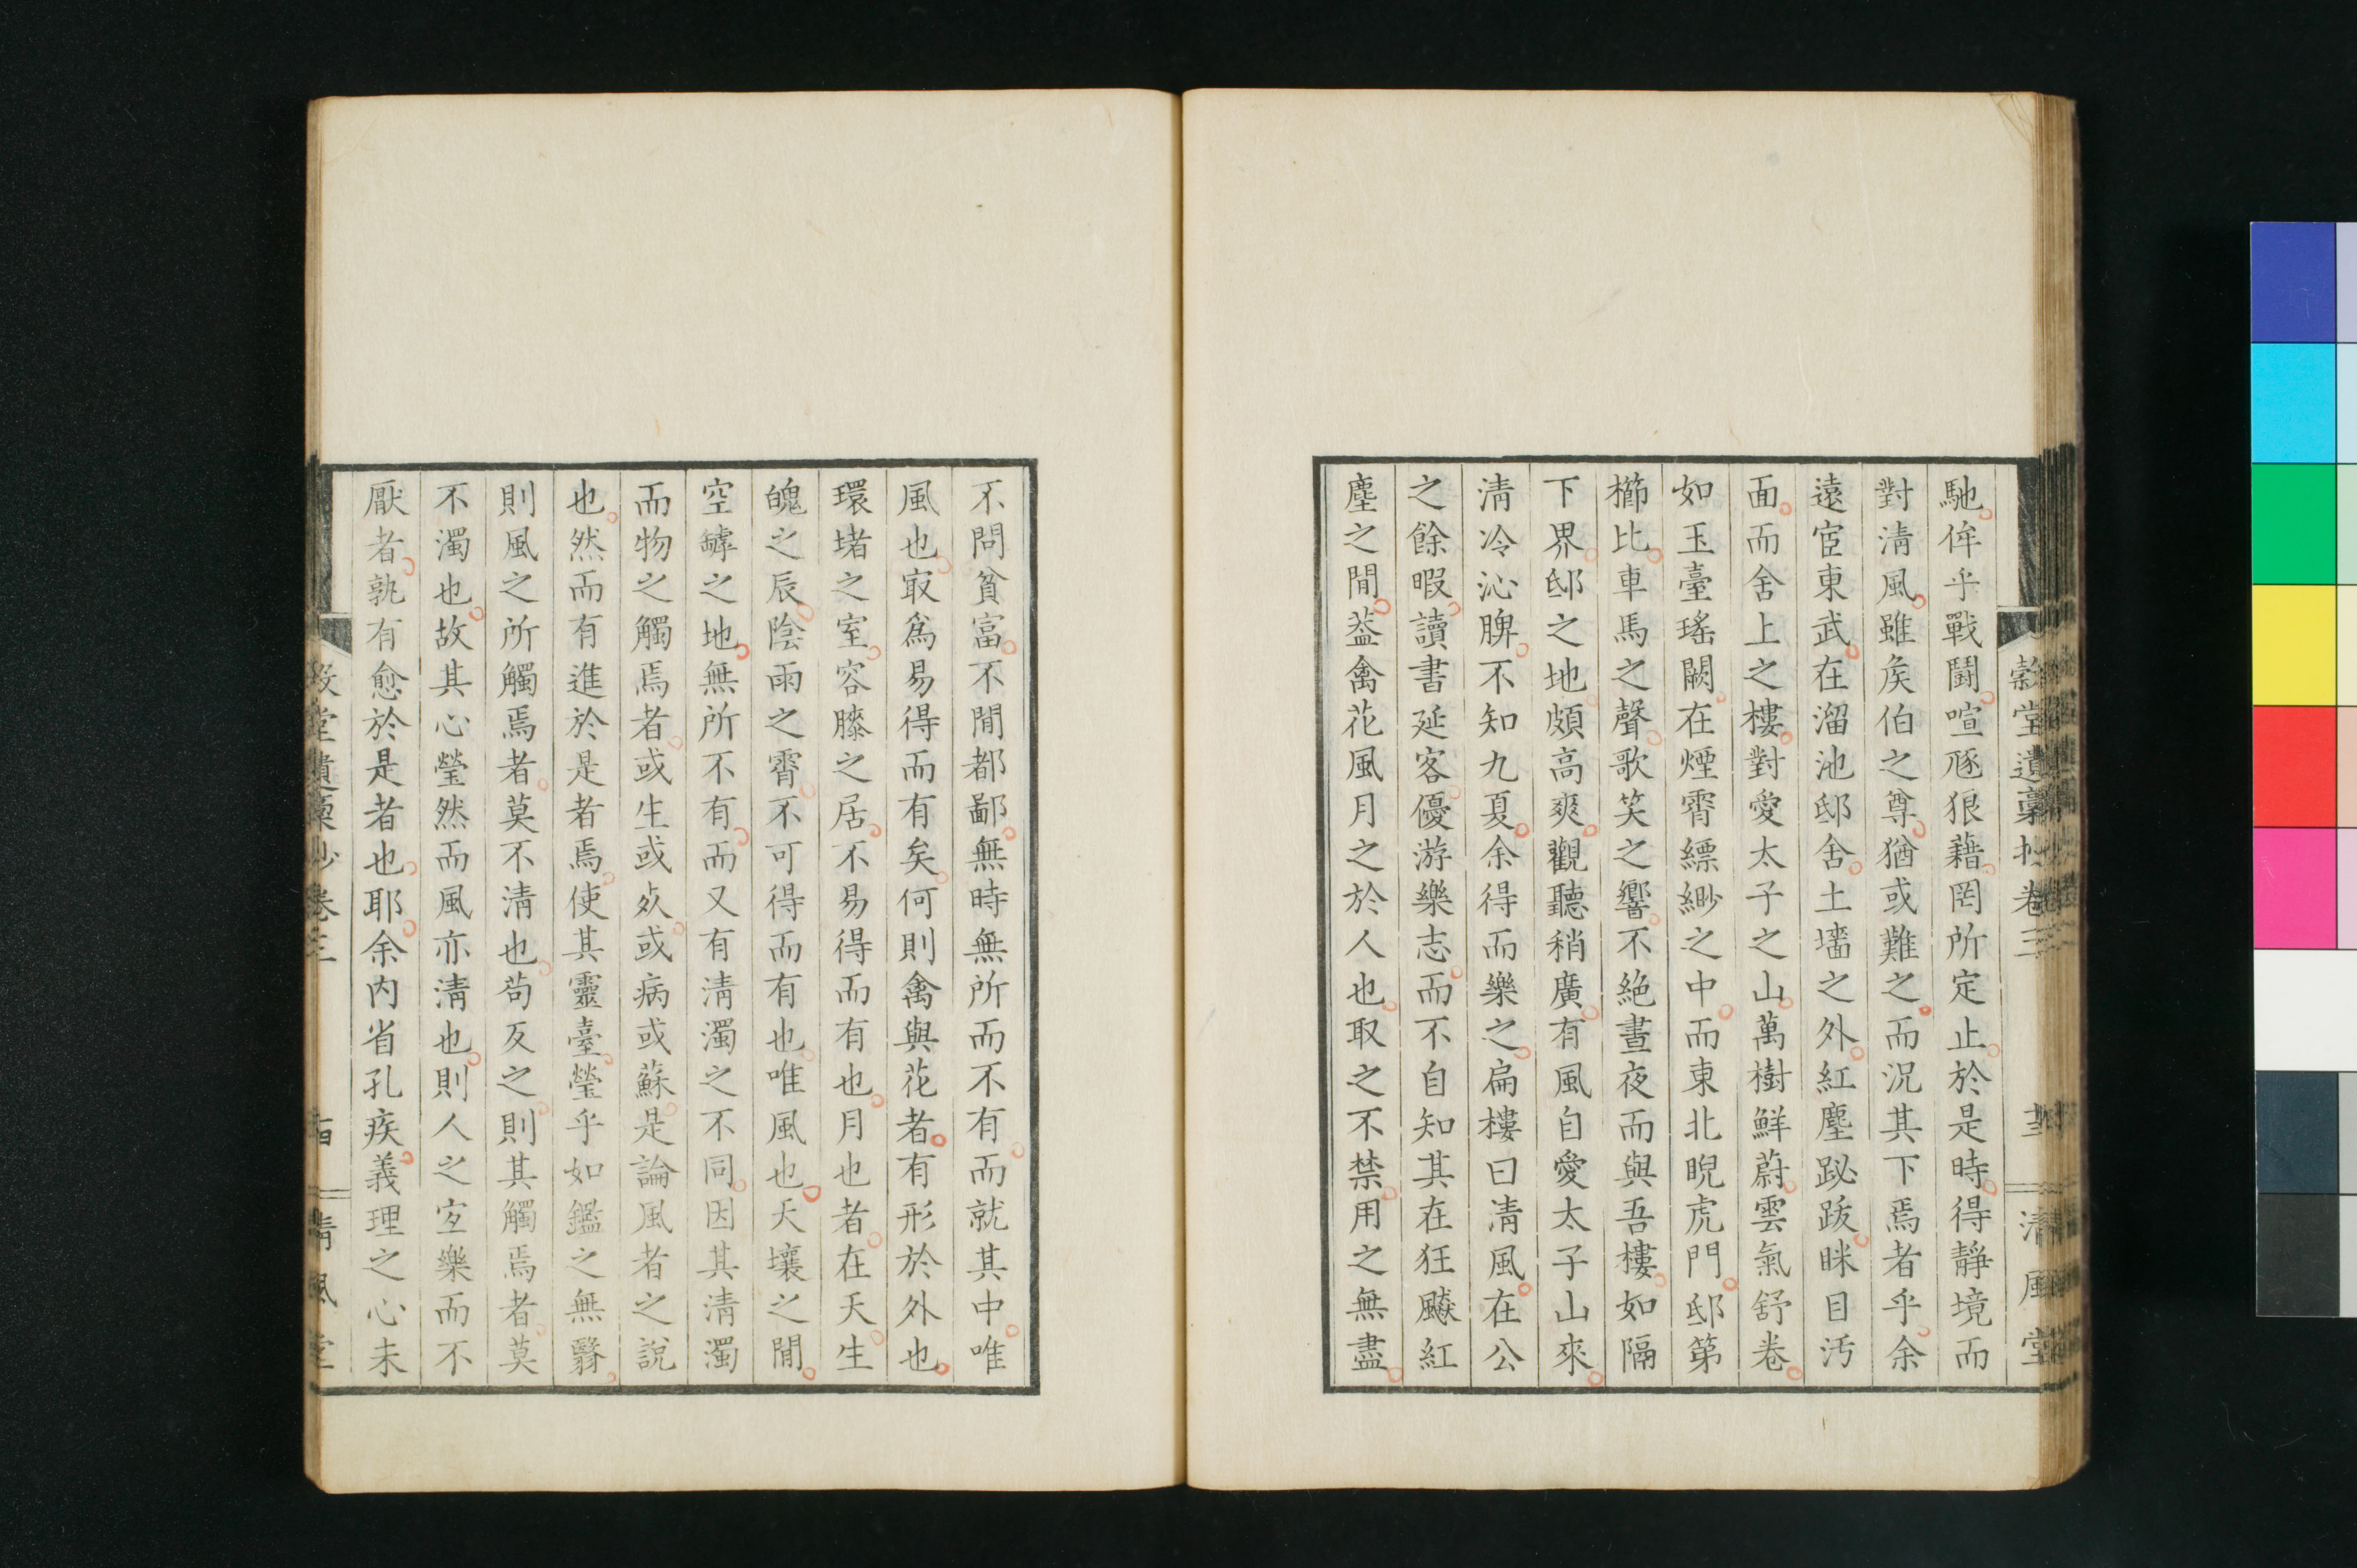 馳侔乎戰鬪喧豗狼藉罔所定止於是時得靜境而
對清風雖矦伯之尊猶或難之而況其下焉者乎余
遠宦東武在溜池邸舍土墻之外紅塵跛眯目汚
面而舍上之樓對愛太子之山萬樹鮮蔚雲氣舒卷
如玉臺瑤闕在煙霄縹緲之中而東北睨虎門邸第
櫛比車馬之聲歌笑之響不絕晝夜而與吾樓如隔
下界邸之地頗高爽觀聽稍廣有風自愛太子山來
清冷沁脾不知九夏余得而樂之扁樓曰清風在公
之餘暇讀書延客優游樂志而不自知其在狂飈紅
塵之閒葢禽花風月之於人也取之不禁用之無盡
不問貧富不閒都鄙無時無所而不有而就其中唯
風也㝡爲易得而有矣何則禽與花者有形於外也
環堵之室容膝之居不易得而有也月也者在天生
魄之辰陰雨之霄不可得而有也唯風也天壤之閒
空罅之地無所不有而又有清濁之不同因其清濁
而物之觸焉者或生或㱙或病或蘇是論風者之說
也然而有進於是者焉使其靈臺瑩乎如鑑之無翳
則風之所觸焉者莫不清也苟反之則其觸焉者莫
不濁也故其心瑩然而風亦清也則人之宜樂而不
厭者孰有愈於是者也耶余內省孔疚義理之心未